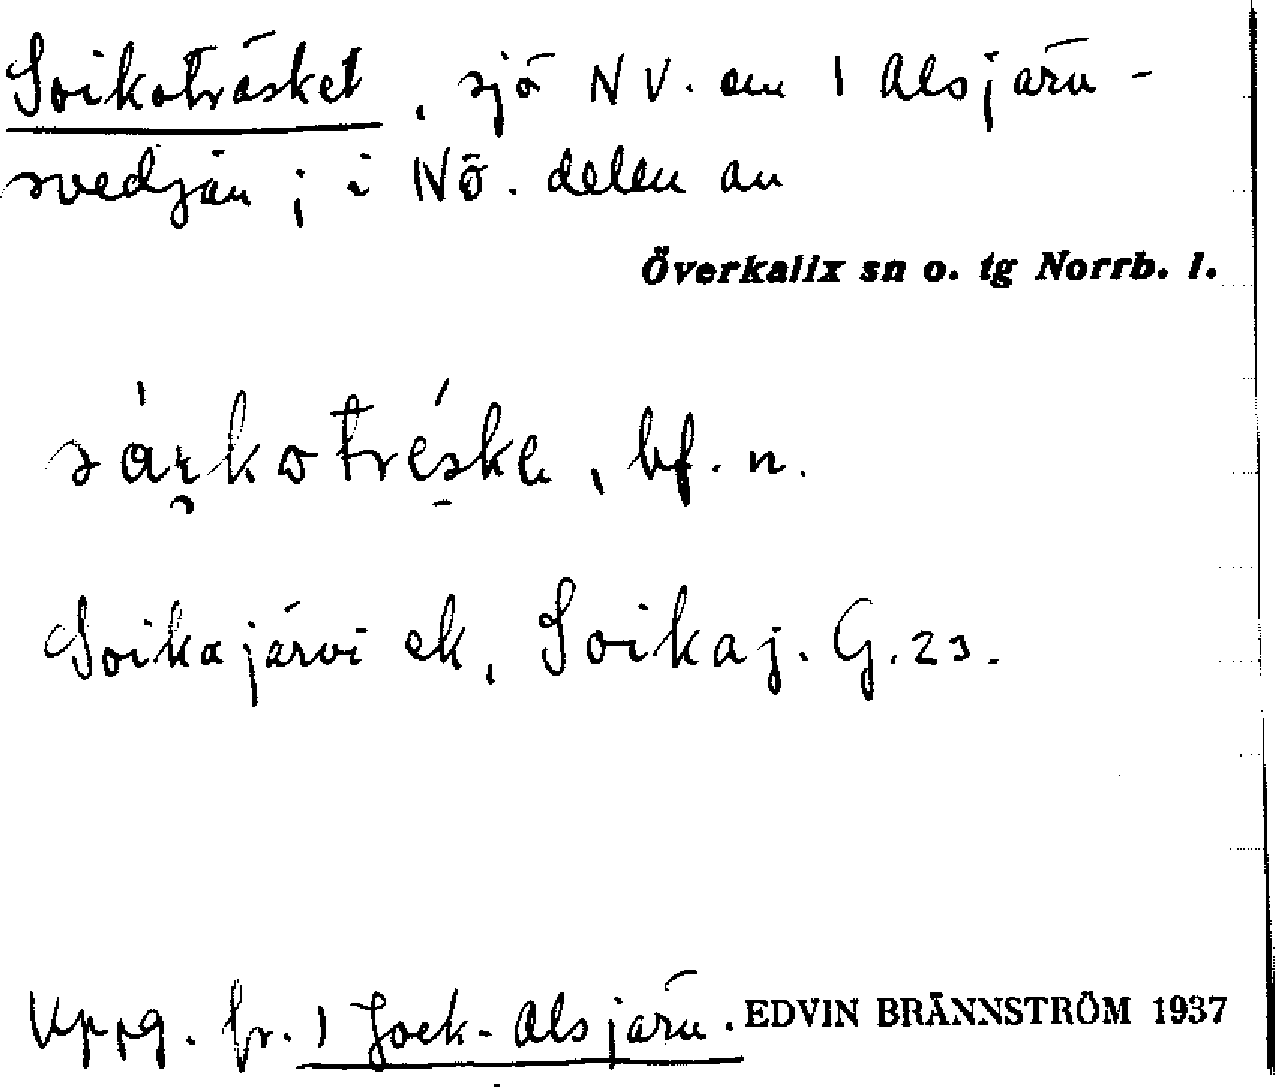 Soikoträsket, sjö NV. om 1 Alsjärv-
svedjan; i NÖ. delen av
Överkalix sn o. tg Norrb. l.
sáı̯kotrę́ske, bf. n.
Soikajärvi ek, Soikaj. G. 23.
Uppg. fr. 1 Jock-Alsjärv. EDVIN BRÄNNSTRÖM 1937